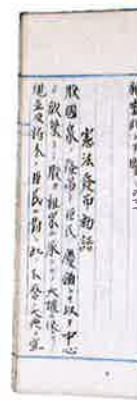 憲法發布勅語
朕國家ノ隆昌ト臣民ノ慶福トヲ以テ中心
ノ欣榮トシ朕カ祖宗ニ承クルノ大權ニ依リ
現在及將來ノ臣民ニ對シ此ノ不磨ノ大典ヲ宣